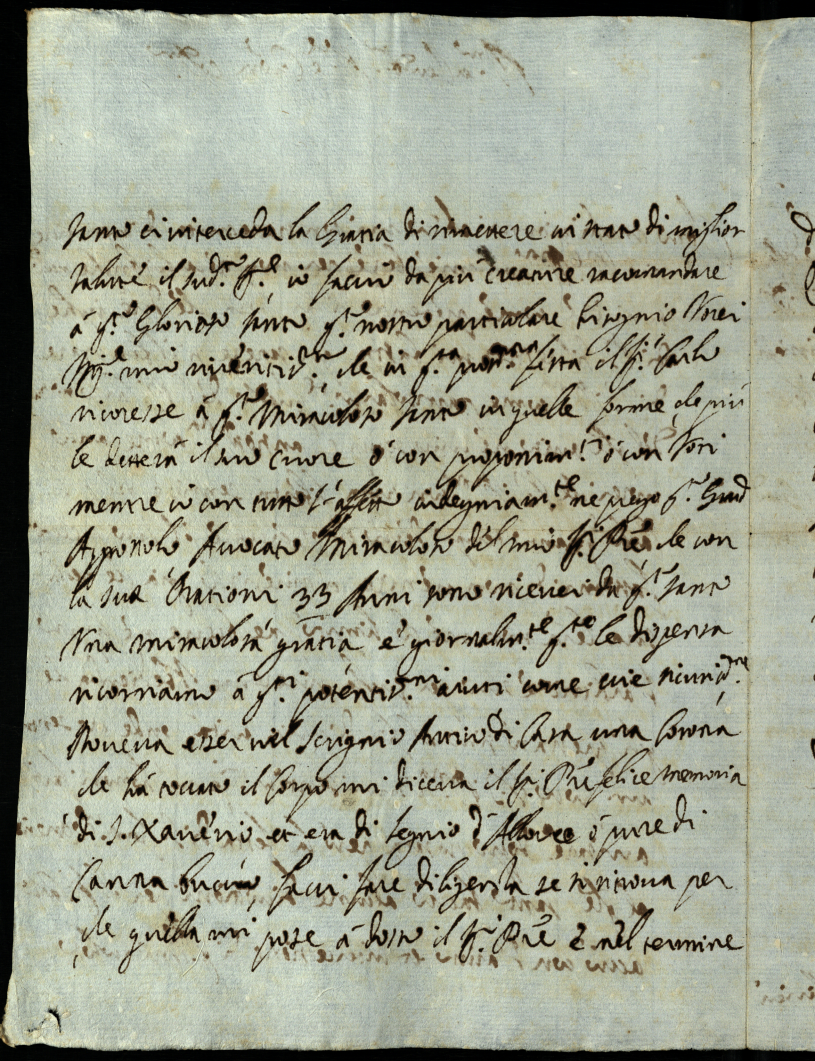 santo ci interceda la Gratia di rimettere in stato di miglior
salute il sud.to Sig.re io faccio da più creature racomandare
à q.to Glorioso santo q.to nostro particolare bisognio Vorei
mio riveritis.mo che in q.ta il Sig.r Carlo
ricoresse à q.to Miracoloso santo in quelle forme che più
le detterà il suo cuore ò con proponiam.ti ò con Voti
mentre io con tutto l'affetto indegniam.te ne prego q.to Grand
Appostolo Avocato Miracoloso del mio Sig.r Pre che con
la sua Orationi 33 Anni sono ricevei da q.to santo
Una miracolosa gratia è giornalm.te q.te le dispensa
ricorriamo à q.ti potentis.mi aiuti come vie sicuris.me
Doveva esser nel scrignio di Casa una Corona
che hà tocato il Corpo mi diceva il Sig.r Pre felice memoria
di S. Xaverio et era di legnio d'Alloee ò pure di
Canna facci fare diligenza se si ritrova per
che quella mi pose à dosso il Sig.r Pre è nel termine